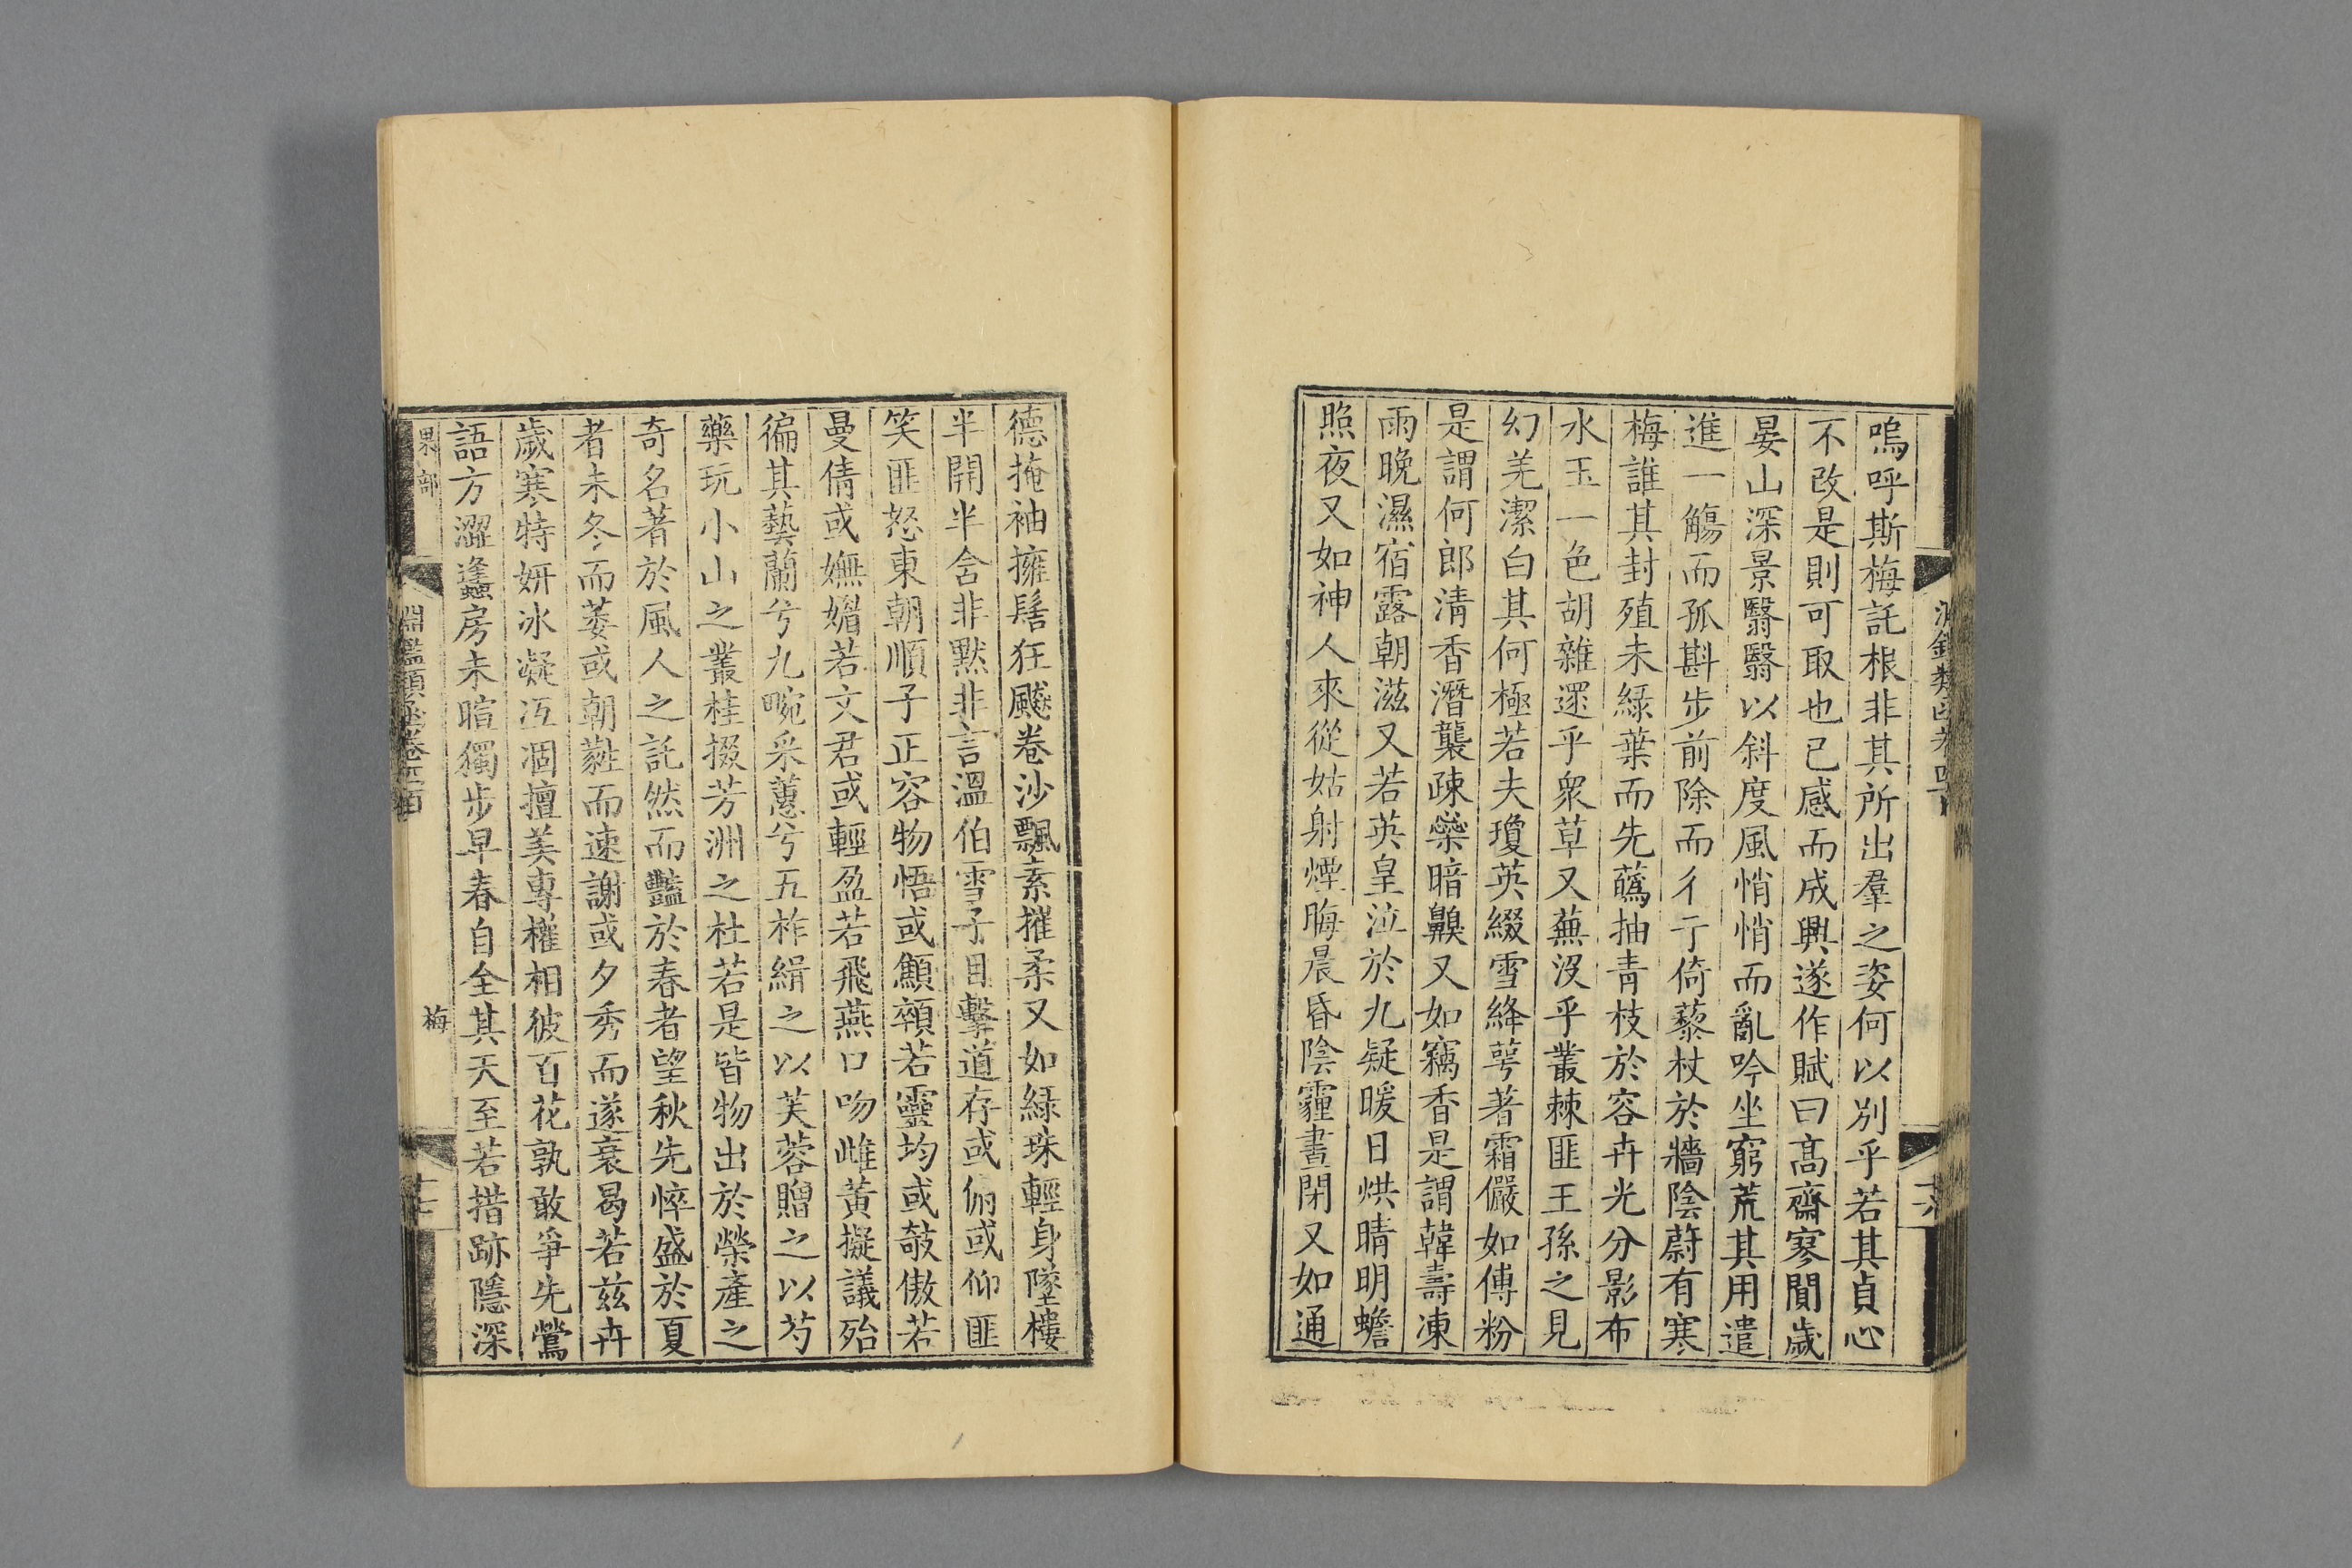 嗚呼斯梅託根非其所出羣之姿何以别乎若其貞心
不改是則可取也已感而成興遂作賦曰高齋寥閴歲
晏山深景翳翳以斜度風悄悄而亂吟坐窮荒其用遣
進一觴而孤斟步前除而彳亍倚藜杖於牆陰蔚有寒
梅誰其封殖未緑葉而先蘤抽青枝於宿卉光分影布
水玉一色胡雜還乎衆草又蕪沒乎叢棘匪王孫之見
幻羌潔白其何極若夫瓊英綴雪絳萼著霜儼如傅粉
是謂何郎清香潛襲疎蘂暗臭又如竊香是謂韓壽凍
雨晚濕宿露朝滋又若英皇泣於九疑暖日烘晴明蟾
照夜又如神人來從姑射煙晦晨昏陰霾晝閉又如通
德掩袖擁髻狂飈卷沙飄素摧柔又如緑珠輕身墜樓
半開半含非默非言溫伯雪子目擊道存或俯或仰匪
笑匪怒東朝順子正容物悟或顦顇若靈均或攲傲若
曼倩或嫵媚若文君或輕盈若飛燕口吻雌黃擬議殆
徧其藝蘭兮九畹采蕙兮五柞緝之以芙蓉贈之以芍
藥玩小山之叢桂掇芳洲之杜若是皆物出於榮產之
奇名著於風人之託然而豔於春者望秋先悴盛於夏
者未冬而萎或朝蘳而速謝或夕秀而遂衰曷若兹卉
歲寒特妍冰凝沍涸擅美專權相彼百花孰敢爭先鶯
語方澀蠭房未暄獨步早春自全其天至若措跡隱深
果部
淵鑑類函卷四百
梅
十七